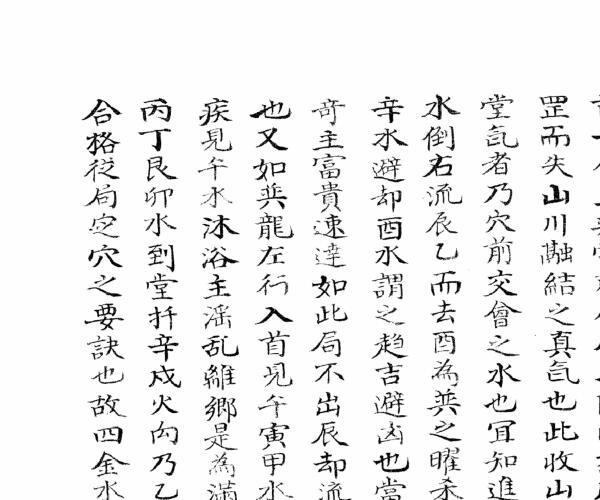 罡而失山川融結之真氣也此收山
堂氣者乃穴前交會之水也宜知進
水倒右流辰乙而去酉為巽之曜杀
辛水避却酉水謂之趋吉避凶也當
奇主富貴速達如此局不出辰却流
也又如巽龍左行入首見午寅甲水
疾見午水沐浴主淫乱離鄉是為滿
丙丁艮卯水到堂扦辛戍火向乃乙
合格從局定穴之要訣也故四金水